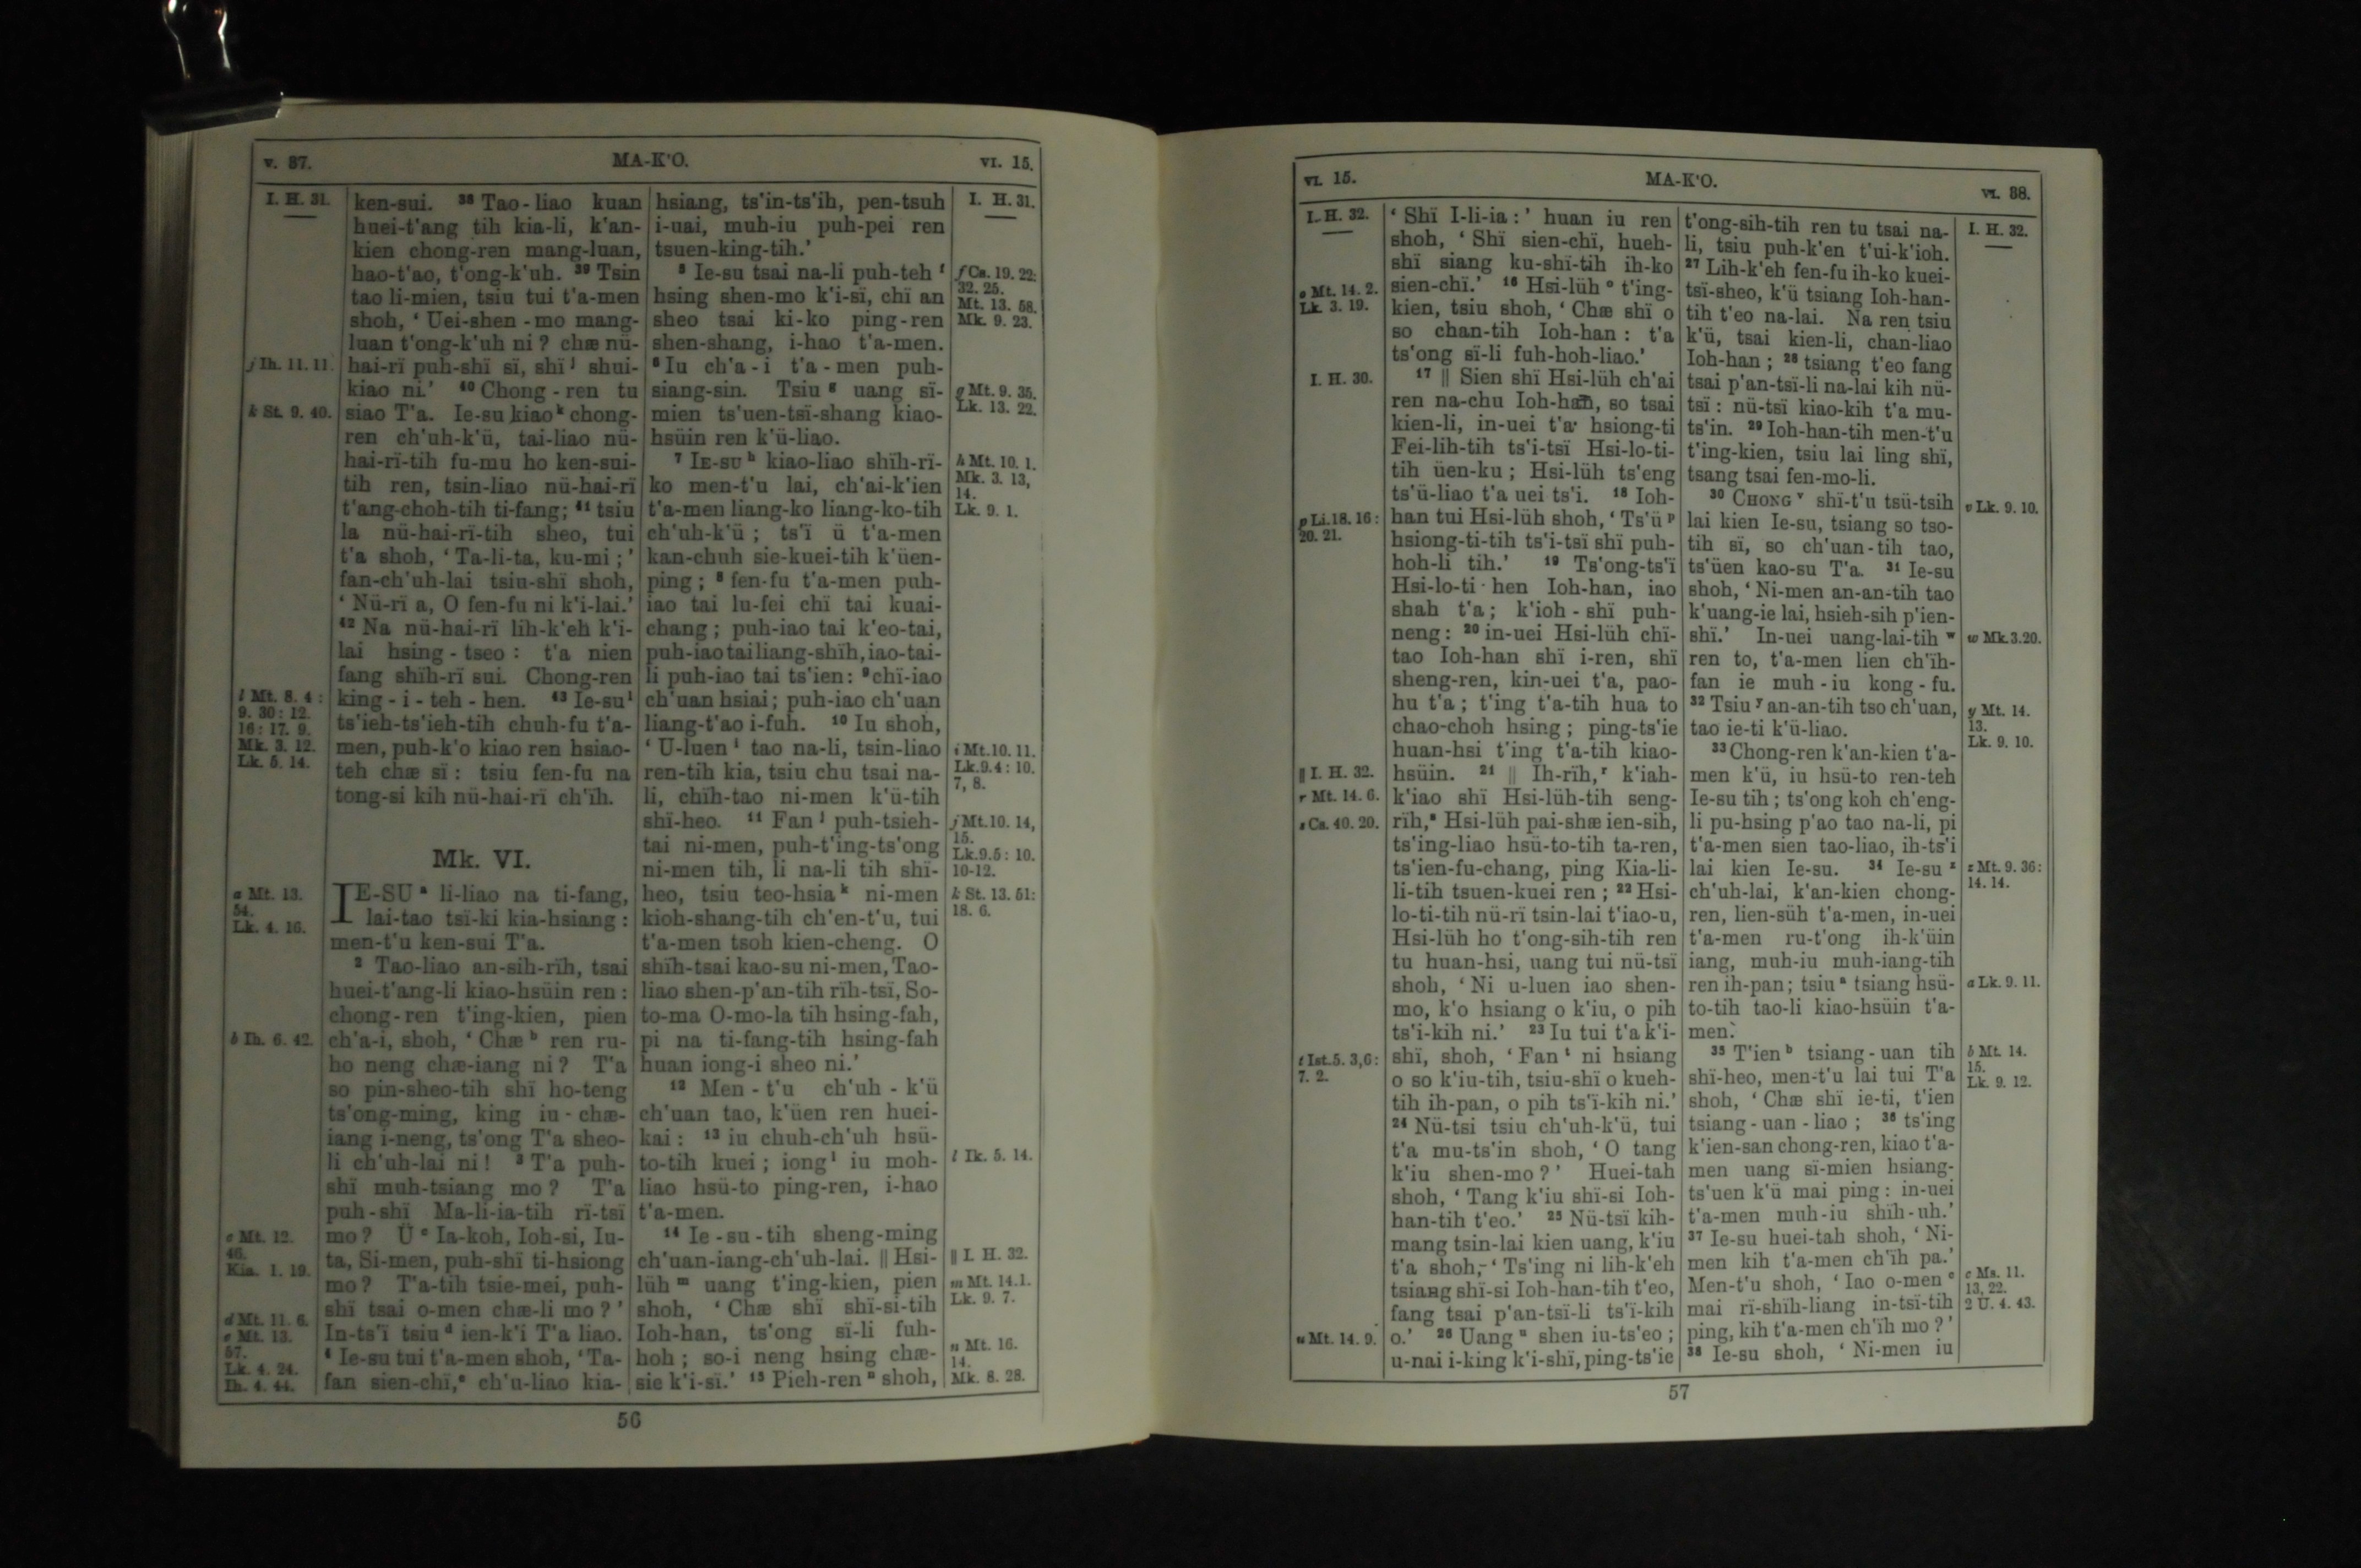 v. 37. MA-K'O. VI. 15.
I. H. 31.
j Ih. 11. 11.
k St. 9. 40.
l Mt. 8. 4 :
9. 30 : 12.
16 : 17. 9.
Mk. 3. 12.
Lk. 5. 14.
a Mt. 13.
54.
Lk. 4. 16.
b Ih. 6. 42.
c Mt. 12.
46.
Kia. 1. 19.
d Mt. 11. 6.
e Mt. 13.
57.
Lk. 4. 24.
Ih. 4. 44.
ken-sui. 38 Tao-liao kuan
huei-t'ang tih kia-li, k'an-
kien chong-ren mang-luan,
hao-t'ao, t'ong-k'uh. 39 Tsin
tao li-mien, tsiu tui t'a-men
shoh, ‘ Uei-shen-mo mang-
luan t'ong-k'uh ni ? chæ nü-
hai-rï puh-shï sï, shï j shui-
kiao ni.’ 40 Chong-ren tu
siao T'a. Ie-su kiao k chong-
ren ch'uh-k'ü, tai-liao nü-
hai-rï-tih fu-mu ho ken-sui-
tih ren, tsin-liao nü-hai-rï
t'ang-choh-tih ti-fang; 41 tsiu
la nü-hai-rï-tih sheo, tui
t'a shoh, ‘ Ta-li-ta, ku-mi ; ’
fan-ch'uh-lai tsiu-shï shoh,
‘ Nü-rï a, O fen-fu ni k'i-lai.’
42 Na nü-hai-rï lih-k'eh k'i-
lai hsing-tseo : t'a nien
fang shïh-rï sui. Chong-ren
king-i-teh-hen. 43 Ie-su l
ts'ieh-ts'ieh-tih chuh-fu t'a-
men, puh-k'o kiao ren hsiao-
teh chæ sï : tsiu fen-fu na
tong-si kih nü-hai-rï ch'ïh.
Mk. VI.
IE-SU a li-liao na ti-fang,
lai-tao tsï-ki kia-hsiang :
men-t'u ken-sui T'a.
2 Tao-liao an-sih-rïh, tsai
huei-t'ang-li kiao-hsüin ren :
chong-ren t'ing-kien, pien
ch'a-i, shoh, ‘ Chæ b ren ru-
ho neng chæ-iang ni ? T'a
so pin-sheo-tih shï ho-teng
ts'ong-ming, king iu-chæ-
iang i-neng, ts'ong T'a sheo-
li ch'uh-lai ni ! 3 T'a puh-
shï muh-tsiang mo ? T'a
puh-shï Ma-li-ia-tih rï-tsï
mo ? Ü c Ia-koh, Ioh-si, Iu-
ta, Si-men, puh-shï ti-hsiong
mo ? T'a-tih tsie-mei, puh-
shï tsai o-men chæ-li mo ? ’
In-ts'ï tsiu d ien-k'i T'a liao.
4 Ie-su tui t'a-men shoh, ‘ Ta-
fan sien-chï, e ch'u-liao kia-
hsiang, ts'in-ts'ih, pen-tsuh
i-uai, muh-iu puh-pei ren
tsuen-king-tih.’
5 Ie-su tsai na-li puh-teh f
hsing shen-mo k'i-sï, chï an
sheo tsai ki-ko ping-ren
shen-shang, i-hao t'a-men.
6 Iu ch'a-i t'a-men puh-
siang-sin. Tsiu g uang sï-
mien ts'uen-tsï-shang kiao-
hsüin ren k'ü-liao.
7 IE-SU h kiao-liao shïh-rï-
ko men-t'u lai, ch'ai-k'ien
t'a-men liang-ko liang-ko-tih
ch'uh-k'ü ; ts'ï ü t'a-men
kan-chuh sie-kuei-tih k'üen-
ping ; 8 fen-fu t'a-men puh-
iao tai lu-fei chï tai kuai-
chang ; puh-iao tai k'eo-tai,
puh-iao tai liang-shïh, iao-tai-
li puh-iao tai ts'ien : 9 chï-iao
ch'uan hsiai ; puh-iao ch'uan
liang-t'ao i-fuh. 10 Iu shoh,
‘ U-luen i tao na-li, tsin-liao
ren-tih kia, tsiu chu tsai na-
li, chïh-tao ni-men k'ü-tih
shï-heo. 11 Fan j puh-tsieh-
tai ni-men, puh-t'ing-ts'ong
ni-men tih, li na-li tih shï-
heo, tsiu teo-hsia k ni-men
kioh-shang-tih ch'en-t'u, tui
t'a-men tsoh kien-cheng. O
shïh-tsai kao-su ni-men, Tao-
liao shen-p'an-tih rïh-tsï, So-
to-ma O-mo-la tih hsing-fah,
pi na ti-fang-tih hsing-fah
huan iong-i sheo ni.’
12 Men-t'u ch'uh-k'ü
ch'uan tao, k'üen ren huei-
kai : 13 iu chuh-ch'uh hsü-
to-tih kuei ; iong l iu moh-
liao hsü-to ping-ren, i-hao
t'a-men.
14 Ie-su-tih sheng-ming
ch'uan-iang-ch'uh-lai. || Hsi-
lüh m uang t'ing-kien, pien
shoh, ‘ Chæ shï shï-si-tih
Ioh-han, ts'ong sï-li fuh-
hoh ; so-i neng hsing chæ-
sie k'i-sï.’ 15 Pieh-ren n shoh,
I. H. 31.
f Cs. 19. 22:
32. 25.
Mt. 13. 58.
Mk. 9. 23.
g Mt. 9. 35.
Lk. 13. 22.
h Mt. 10. 1.
Mk. 3. 13,
14.
Lk. 9. 1.
i Mt. 10. 11.
Lk. 9. 4 : 10.
7, 8.
j Mt. 10. 14,
15.
Lk. 9. 5 : 10.
10-12.
k St. 13. 51:
18. 6.
l Ik. 5. 14.
|| I. H. 32.
m Mt. 14.1.
Lk. 9. 7.
n Mt. 16.
14.
Mk. 8. 28.
56
VI. 15. MA-K'O. VI. 38.
I. H. 32.
o Mt. 14. 2.
Lk. 3. 19.
I. H. 30.
p Li. 18. 16 :
20. 21.
|| I. H. 32.
r Mt. 14. 6.
s Cs. 40. 20.
t Ist. 5. 3, 6 :
7. 2.
u Mt. 14. 9.
‘ Shï I-li-ia : ’ huan iu ren
shoh, ‘ Shï sien-chï, hueh-
shï siang ku-shï-tih ih-ko
sien-chï.’ 16 Hsi-lüh o t'ing-
kien, tsiu shoh, ‘ Chæ shï o
so chan-tih Ioh-han : t'a
ts'ong sï-li fuh-hoh-liao.’
17 || Sien shï Hsi-lüh ch'ai
ren na-chu Ioh-han, so tsai
kien-li, in-uei t'a hsiong-ti
Fei-lih-tih ts'i-tsï Hsi-lo-ti-
tih üen-ku ; Hsi-lüh ts'eng
ts'ü-liao t'a uei ts'i. 18 Ioh-
han tui Hsi-lüh shoh, ‘ Ts'ü p
hsiong-ti-tih ts'i-tsï shï puh-
hoh-li tih.’ 19 Ts'ong-ts'ï
Hsi-lo-ti hen Ioh-han, iao
shah t'a ; k'ioh-shï puh-
neng : 20 in-uei Hsi-lüh chï-
tao Ioh-han shï i-ren, shï
sheng-ren, kin-uei t'a, pao-
hu t'a ; t'ing t'a-tih hua to
chao-choh hsing ; ping-ts'ie
huan-hsi t'ing t'a-tih kiao-
hsüin. 21 || Ih-rïh, r k'iah-
k'iao shï Hsi-lüh-tih seng-
rïh, s Hsi-lüh pai-shæ ien-sih,
ts'ing-liao hsü-to-tih ta-ren,
ts'ien-fu-chang, ping Kia-li-
li-tih tsuen-kuei ren ; 22 Hsi-
lo-ti-tih nü-rï tsin-lai t'iao-u,
Hsi-lüh ho t'ong-sih-tih ren
tu huan-hsi, uang tui nü-tsï
shoh, ‘ Ni u-luen iao shen-
mo, k'o hsiang o k'iu, o pih
ts'i-kih ni.’ 23 Iu tui t'a k'i-
shï, shoh, ‘ Fan t ni hsiang
o so k'iu-tih, tsiu-shï o kueh-
tih ih-pan, o pih ts'ï-kih ni.’
24 Nü-tsi tsiu ch'uh-k'ü, tui
t'a mu-ts'in shoh, ‘ O tang
k'iu shen-mo ? ’ Huei-tah
shoh, ‘ Tang k'iu shï-si Ioh-
han-tih t'eo.’ 25 Nü-tsï kih-
mang tsin-lai kien uang, k'iu
t'a shoh, ‘ Ts'ing ni lih-k'eh
tsiang shï-si Ioh-han-tih t'eo,
fang tsai p'an-tsï-li ts'ï-kih
o.’ 26 Uang u shen iu-ts'eo ;
u-nai i-king k'i-shï, ping-ts'ie
t'ong-sih-tih ren tu tsai na-
li, tsiu puh-k'en t'ui-k'ioh.
27 Lih-k'eh fen-fu ih-ko kuei-
tsï-sheo, k'ü tsiang Ioh-han-
tih t'eo na-lai. Na ren tsiu
k'ü, tsai kien-li, chan-liao
Ioh-han ; 28 tsiang t'eo fang
tsai p'an-tsï-li na-lai kih nü-
tsï : nü-tsï kiao-kih t'a mu-
ts'in. 29 Ioh-han-tih men-t'u
t'ing-kien, tsiu lai ling shï,
tsang tsai fen-mo-li.
30 CHONG v shï-t'u tsü-tsih
lai kien Ie-su, tsiang so tso-
tih sï, so ch'uan-tih tao,
ts'üen kao-su T'a. 31 Ie-su
shoh, ‘ Ni-men an-an-tih tao
k'uang-ie lai, hsieh-sih p'ien-
shï.’ In-uei uang-lai-tih w
ren to, t'a-men lien ch'ïh-
fan ie muh-iu kong-fu.
32 Tsiu y an-an-tih tso ch'uan,
tao ie-ti k'ü-liao.
33 Chong-ren k'an-kien t'a-
men k'ü, iu hsü-to ren-teh
Ie-su tih ; ts'ong koh ch'eng-
li pu-hsing p'ao tao na-li, pi
t'a-men sien tao-liao, ih-ts'i
lai kien Ie-su. 34 Ie-su z
ch'uh-lai, k'an-kien chong-
ren, lien-süh t'a-men, in-uei
t'a-men ru-t'ong ih-k'üin
iang, muh-iu muh-iang-tih
ren ih-pan ; tsiu a tsiang hsü-
to-tih tao-li kiao-hsüin t'a-
men.
35 T'ien b tsiang-uan tih
shï-heo, men-t'u lai tui T'a
shoh, ‘ Chæ shï ie-ti, t'ien
tsiang-uan-liao ; 36 ts'ing
k'ien-san chong-ren, kiao t'a-
men uang sï-mien hsiang-
ts'uen k'ü mai ping : in-uei
t'a-men muh-iu shïh-uh.’
37 Ie-su huei-tah shoh, ‘ Ni-
men kih t'a-men ch'ïh pa.’
Men-t'u shoh, ‘ Iao o-men c
mai rï-shïh-liang in-tsï-tih
ping, kih t'a-men ch'ïh mo ? ’
38 Ie-su shoh, ‘ Ni-men iu
I. H. 32.
v Lk. 9. 10.
w Mk. 3. 20.
y Mt. 14.
13.
Lk. 9. 10.
z Mt. 9. 36 :
14. 14.
a Lk. 9. 11.
b Mt. 14.
15.
Lk. 9. 12.
c Ms. 11.
13, 22.
2 U. 4. 43.
57